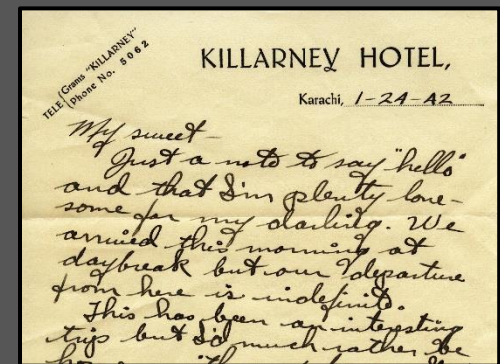 TELE { Grams "KILLARNEY"
Phone No. 5062
KILLARNEY HOTEL,
Karachi, 1-24-42
My sweet -
Just a note to say "hello"
and that I'm plenty lone-
some for my darling. We
arrived this morning at
daybreak but our departure
from here is indefinite.
This has been an interesting
trip but I'd much rather be